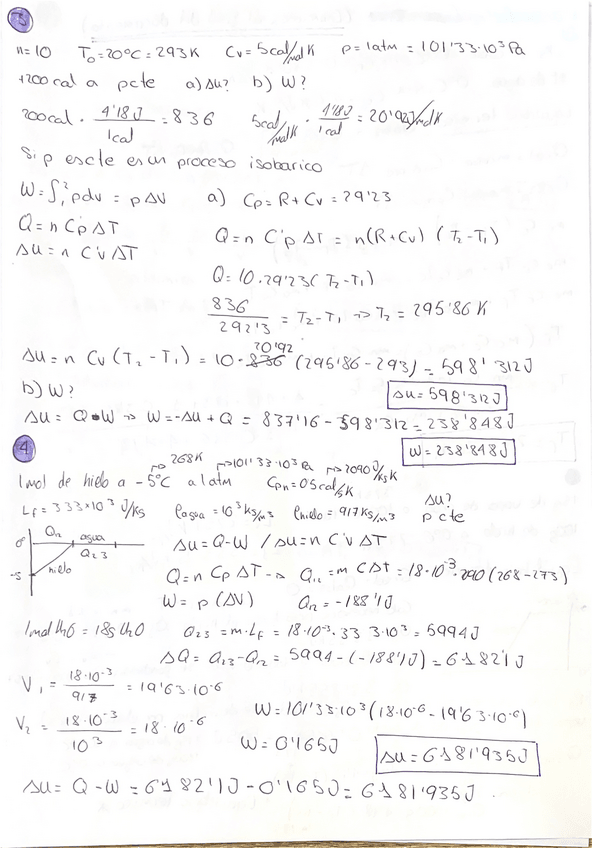 3
n=10 T₀=20ºC=293K Cv=5cal/molK p=1atm=101'33·10³Pa
+200cal a pcte a) Δu? b) W?
200cal · 4'18J/1cal = 836 5cal/molK · 4'18J/1cal = 20'92J/molK
Si p es cte es un proceso isobarico
W=∫₁² pdv = pΔV a) Cp=R+Cv=29'23
Q=n Cp ΔT Q=n C'p ΔT = n(R+Cv) (T₂-T₁)
Δu=n C'v ΔT
Q=10·29'23(T₂-T₁)
836/292'3 = T₂-T₁ → T₂=295'86 K
Δu=n Cv (T₂-T₁) = 10·20'92 (295'86-293) = 598'312J
Δu=598'312J
b) W?
Δu=Q-W → W=-Δu+Q = 837'16-598'312=238'848J
W=238'848J
4
268K 101'33·10³Pa 2090J/KgK
1mol de hielo a -5ºC a 1atm Cpn=0'5cal/gK
Δu?
Lf=333×10³J/Kg ρagua=10³kg/m³ ρhielo=917Kg/m³ p cte
0º Q₁₂ agua Δu=Q-W / Δu=n C'v ΔT
Q₂₃
-5 hielo
Q=n Cp ΔT → Q₁₂=m CΔt=18·10⁻³·2090(268-273)
W=p(ΔV) Q₁₂=-188'1J
1mol H₂O=18g H₂O Q₂₃=m·Lf=18·10⁻³·333·10³=5994J
ΔQ=Q₂₃-Q₁₂=5994-(-188'1J)=6182'1J
V₁=18·10⁻³/917=19'63·10⁻⁶
W=101'33·10³(18·10⁻⁶-19'63·10⁻⁶)
V₂=18·10⁻³/10³=18·10⁻⁶
W=0'165J
Δu=6181'935J
Δu=Q-W=6182'1J-0'165J=6181'935J.